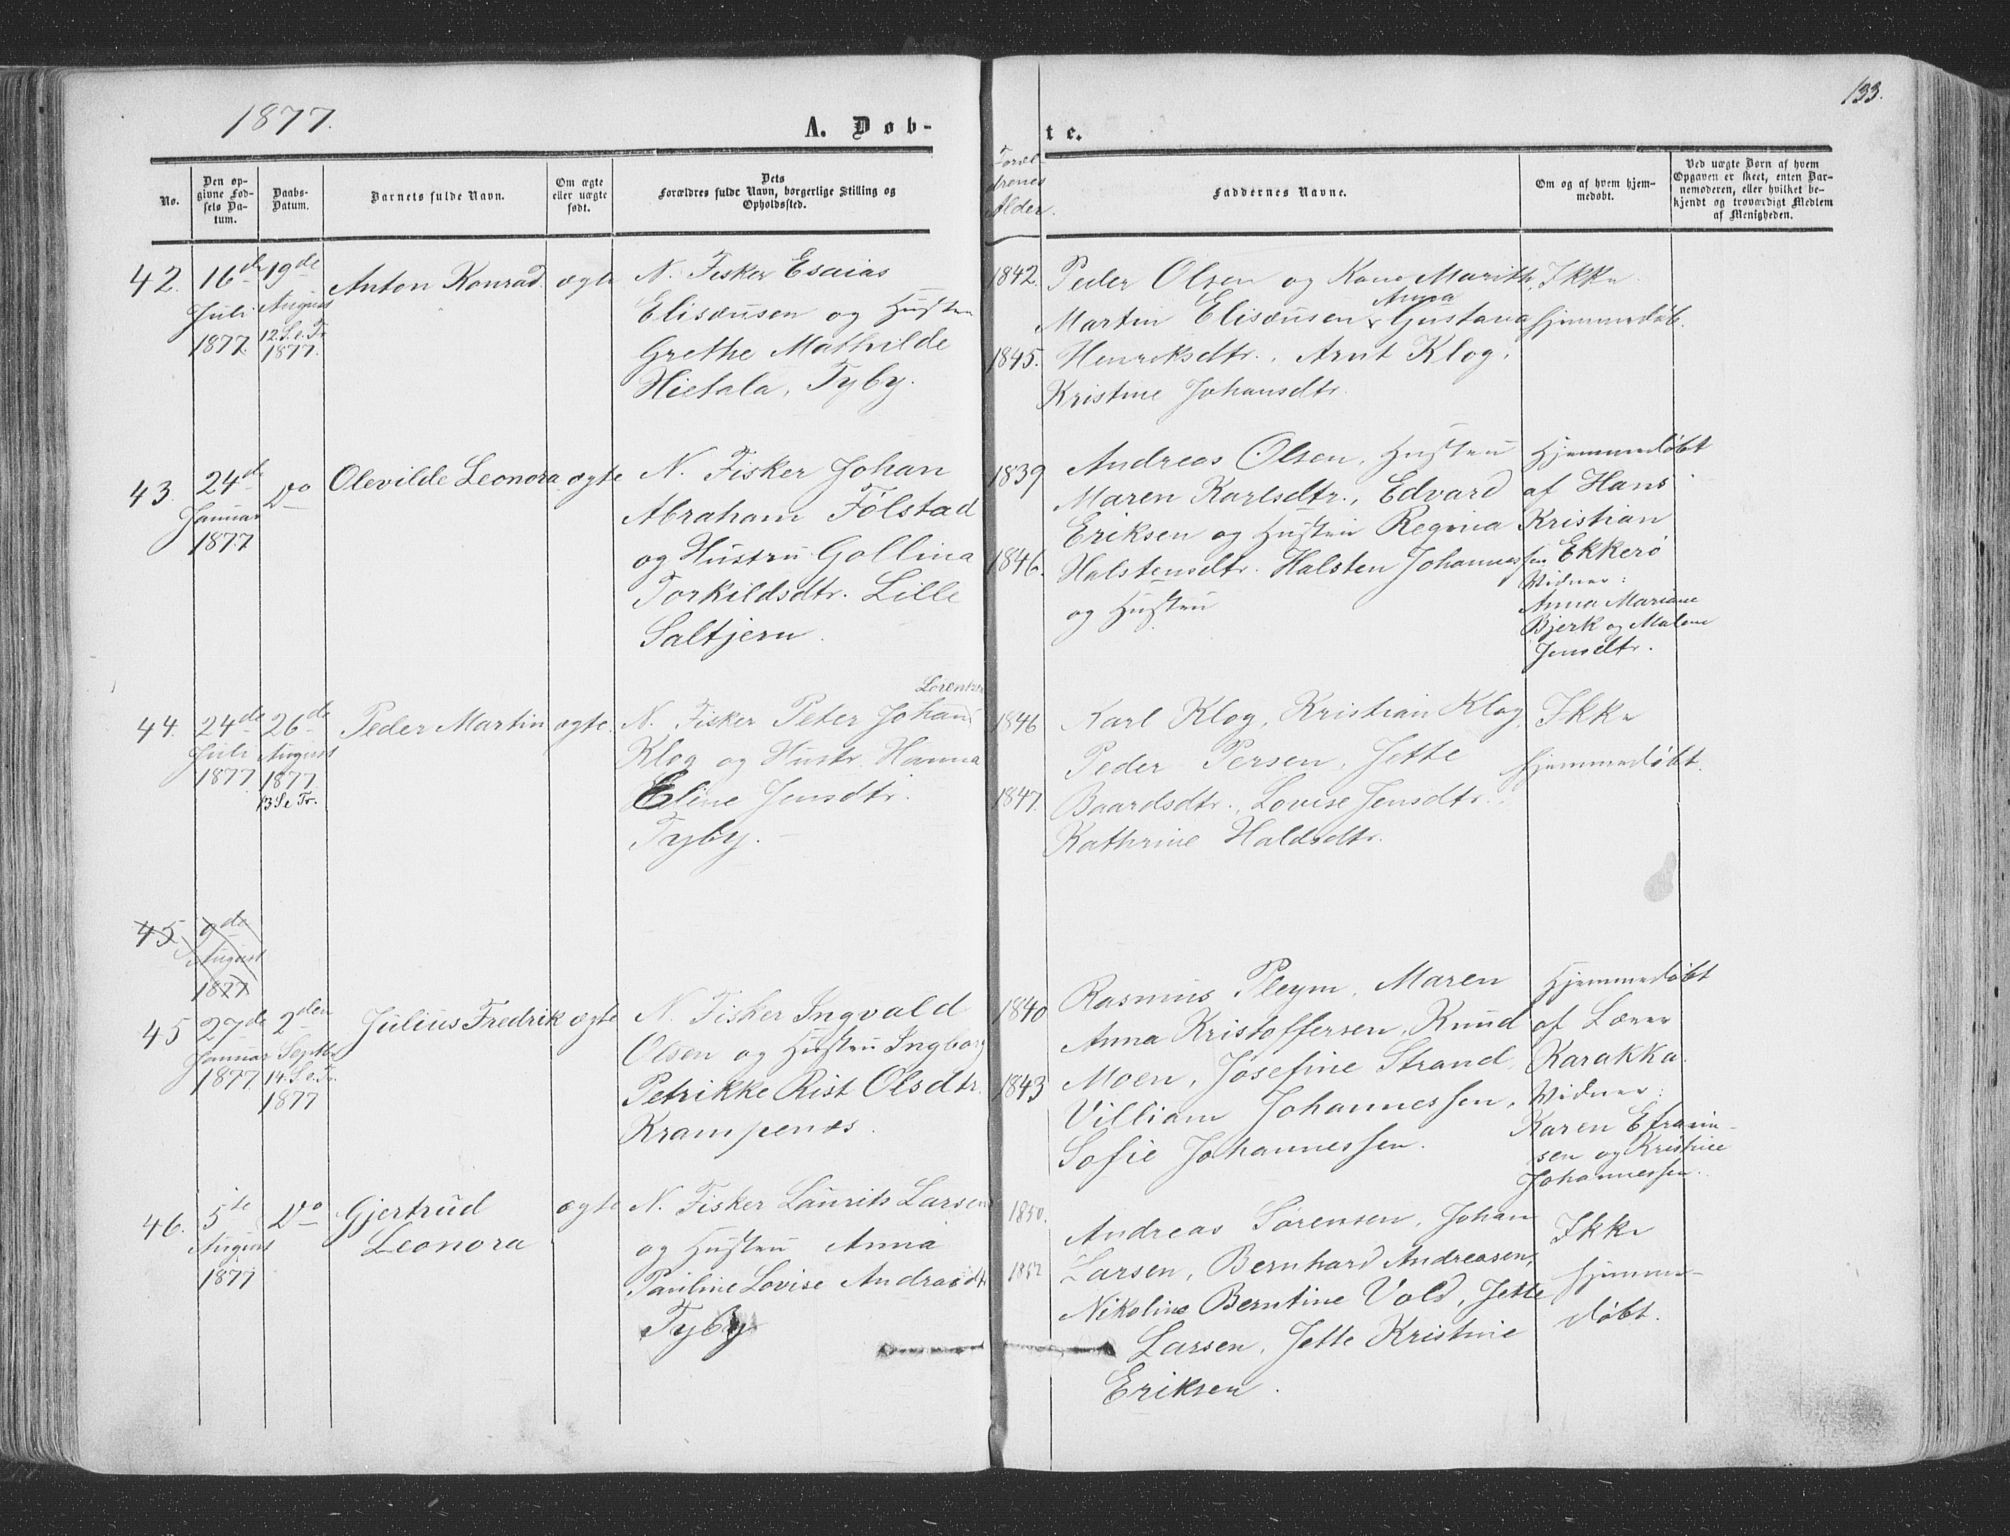 1877.
A. Døb-
te.
133.
No.
Den op-
givne Fød-
sels Da-
tum.
Daabs-
Datum.
Barnets fulde Navn.
Om ægte
eller uægte
født.
Dets
Forældres fulde Navn, borgerlige Stilling og
Opholdssted.
Foræl-
drenes
Alder.
Faddernes Navne.
Om og af hvem hjem-
medøbt.
Ved uægte Børn af hvem
Opgaven er skeet, enten Bar-
nemoderen, eller hvilket be-
kjendt og troværdigt Medlem
af Menigheden.
42.
16de
Juli
1877.
19de
August
12.S.e.Tr.
1877.
Anton Konrad
ægte
N. Fisker Esaias
Elisæusen og Hustru
Grethe Mathilde
Hietala, Tyby.
1842.
1845.
Peder Olsen og Kone Marith,
Anna
Martin Elisæusen Gustava
Henriksdtr., Arnt Klog,
Kristine Johansdtr.
Ikke
hjemmedøb.
43.
24de
Januar
1877
Do
Olevilde Leonora
ægte
N. Fisker Johan
Abraham Følstad
og Hustru Gollina
Torkildsdtr. Lille
Saltjern.
1839
1846.
Andreas Olsen, Hustru
Maren Karlsdtr., Edvard
Eriksen og Hustru Regina
Halstensdtr. Halsten Johannessen
og Hustru
Hjemmedøbt
af Hans
Kristian
Ekkerø
Vidner:
Anna Mariane
Bjerk og Malene
Jensdtr.
44.
24de
Juli
1877
26de
August
1877
13 S e Tr.
Peder Martin
ægte.
Lorentsen
N. Fisker Peter Johan
Klog og Hustr. Hanna
Eline Jensdtr.
Tyby.
1846
1847.
Karl Klog, Kristian Klog,
Peder Persen, Jette
Baardsdtr., Lovise Jensdtr.,
Kathrine Haldsdtr.
Ikke
hjemmedøbt.
45
9de
August
1877
45
27de
Januar
1877.
2den
Septbr
14.S.e.Tr.
1877
Julius Fredrik
ægte
N. Fisker Ingvald
Olsen og Hustru Ingborg
Petrikke Rist Olsdtr.
Krampenæs.
1840
1843
Rasmus Pleym, Maren
Anna Kristoffersen, Knud
Moen, Josefine Strand,
Villiam Johannessen,
Sofie Johannessen.
Hjemmedøbt
af Lærer
Karakka.
Vidner:
Karen Efraim-
sen og Kristine
Johannessen.
46.
5te
August
1877
Do
Gjertrud
Leonora
ægte
N. Fisker Laurits Larsen
og Hustru Anna
Pauline Lovise Andreasdtr
Tyby
1850.
1852
Andreas Sørensen, Johan
Larsen, Bernhard Andreasen,
Nikoline Berntine Vold, Jette
Larsen, Jette Kristine
Eriksen.
Ikke
hjemme-
døbt.